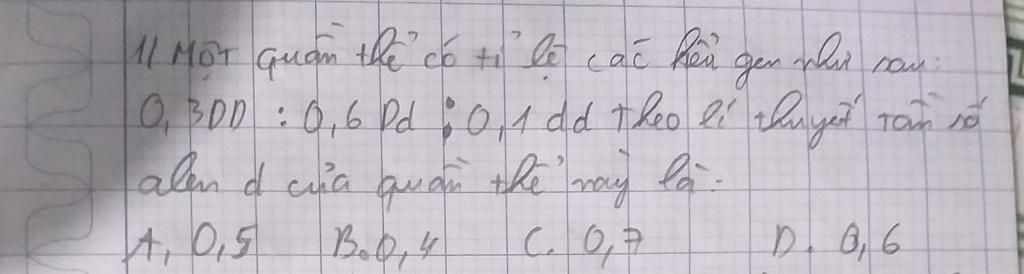 1) Một quần thể có tỉ lệ các kiểu gen như sau:
0,3DD : 0,6 Dd : 0,1 dd theo lí thuyết tần số
alen d của quần thể này là:
A, 0,5 B. 0,4 C. 0,7 D. 0,6